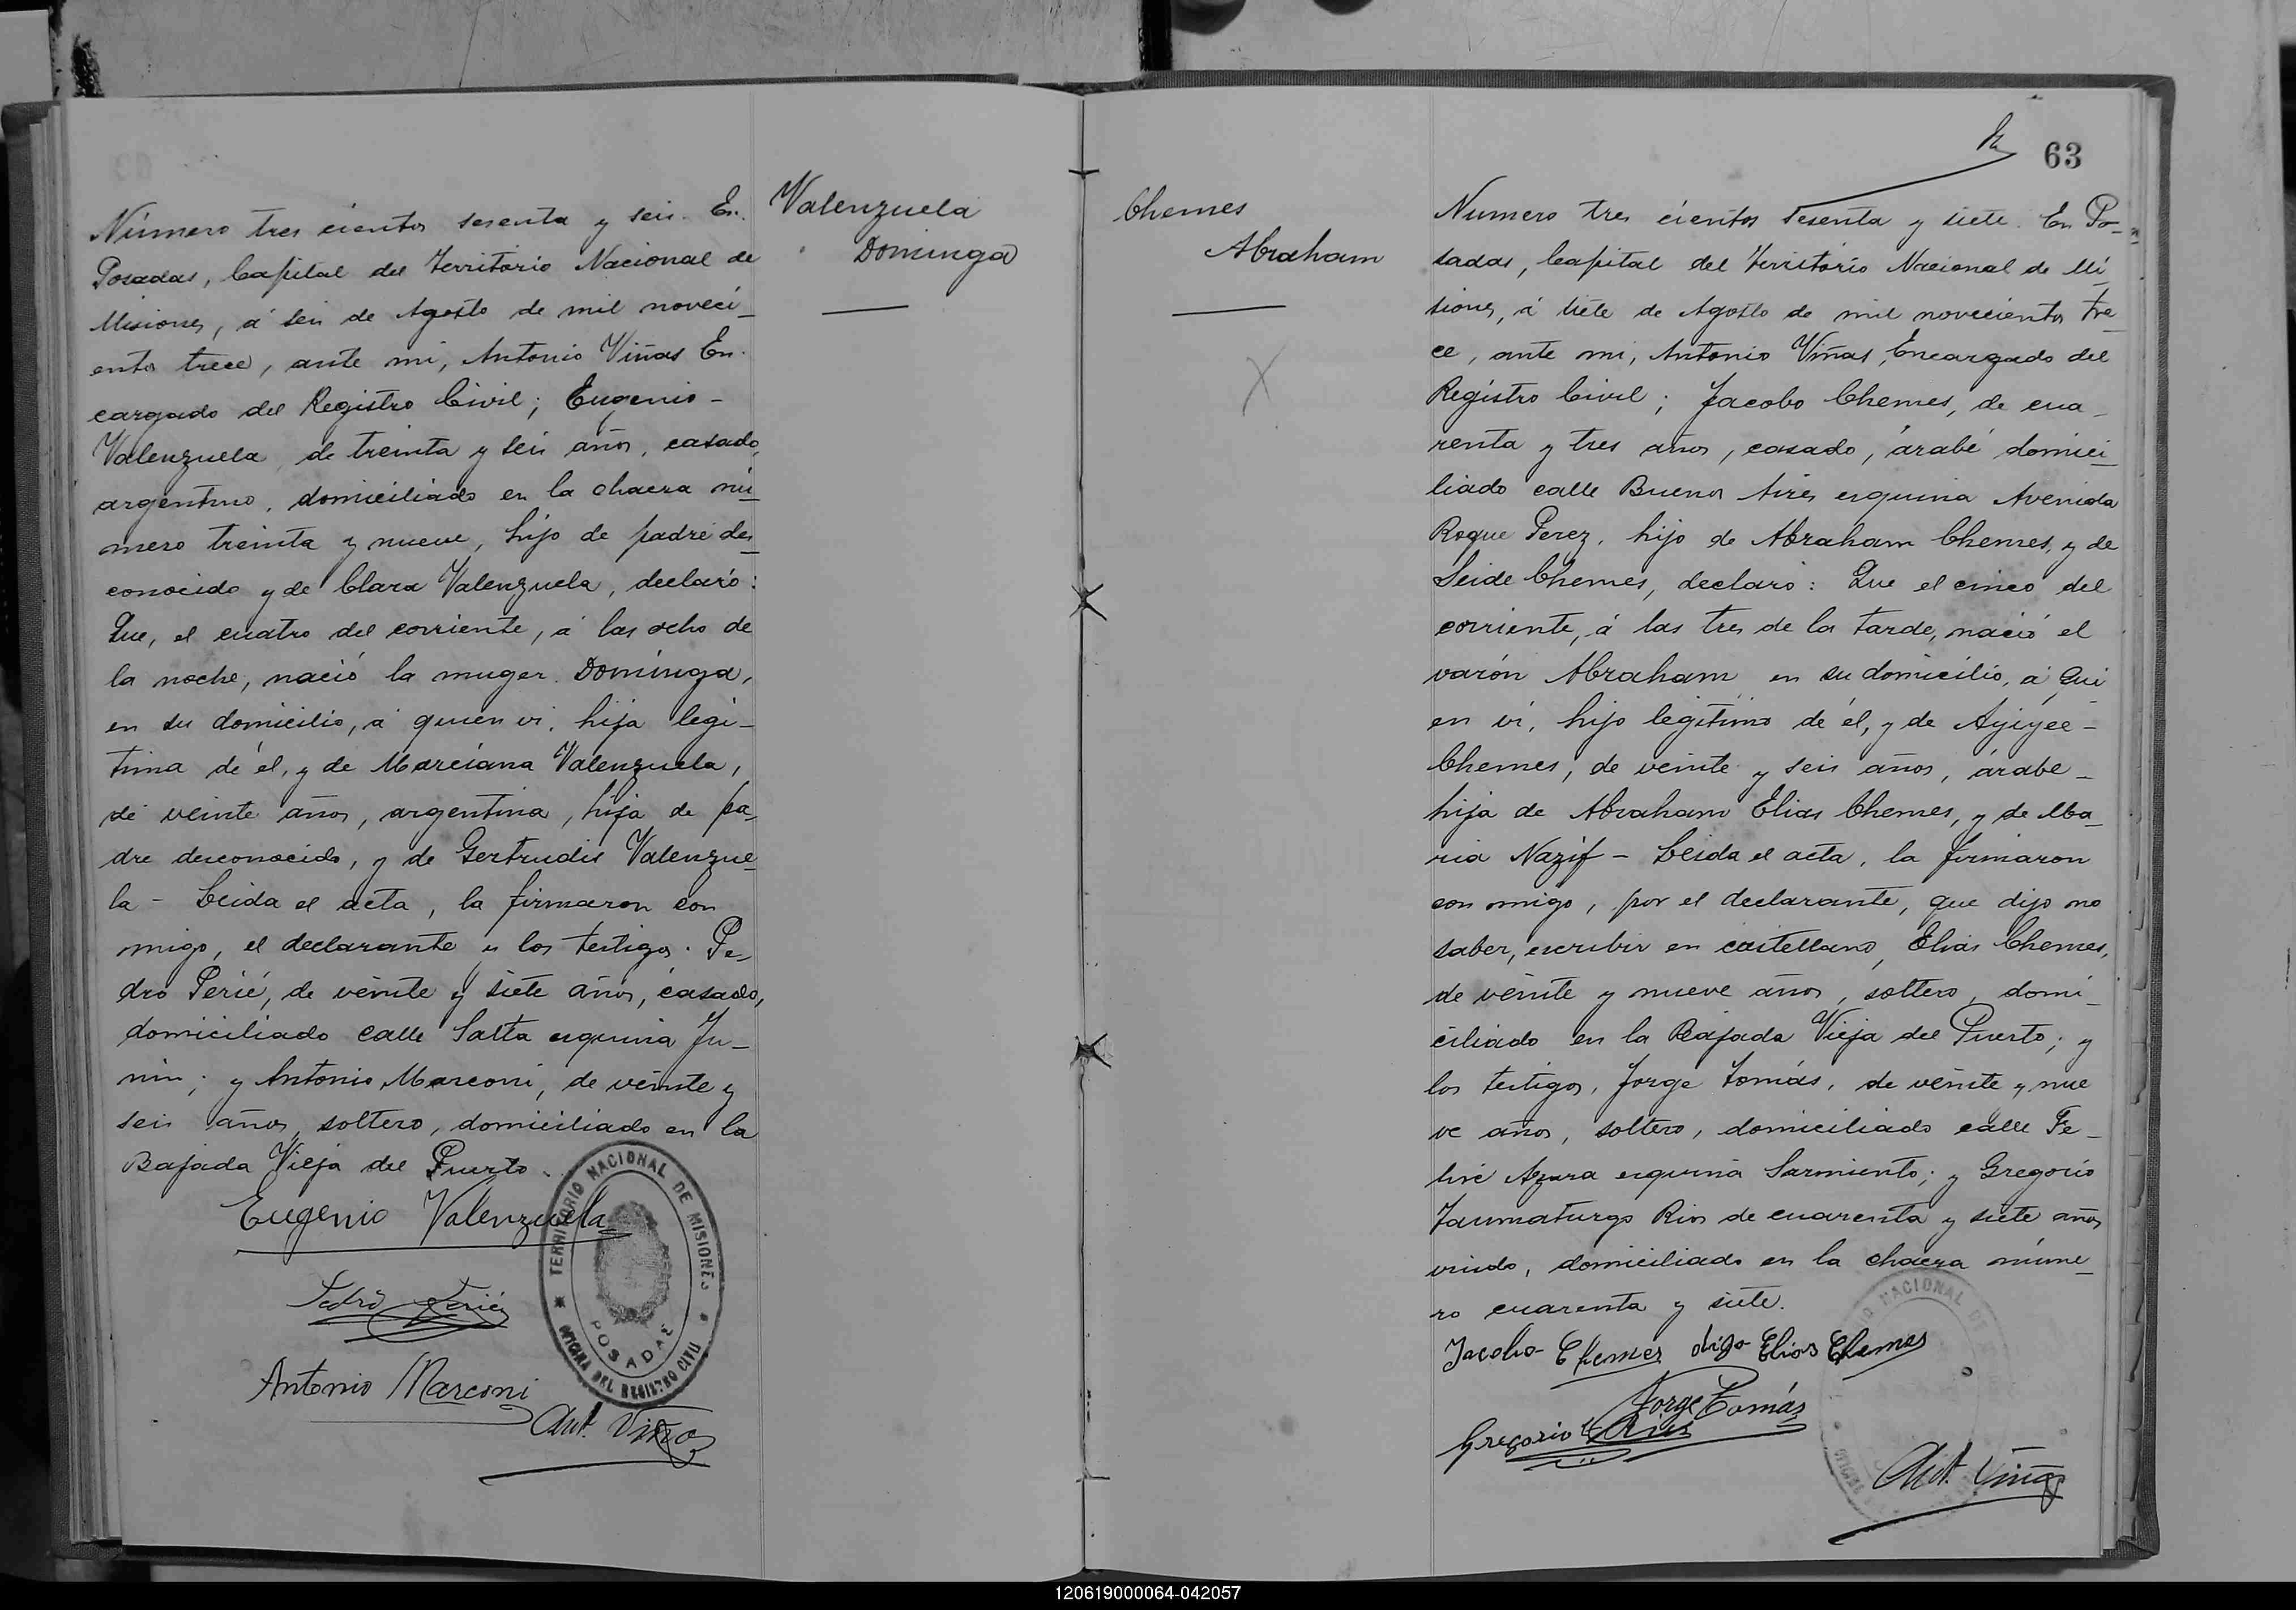 Número tres cientos sesenta y seis. En
Posadas, Capital del Territorio Nacional de
Misiones, á seis de Agosto de mil noveci_
entos trece, ante mi, Antonio Viñas En-
cargado del Registro Civil; Eugenio -
Valenzuela, de treinta y seis años, casado,
argentino, domiciliado en la chacra nú_
mero treinta y nueve, hijo de padre des_
conocido y de Clara Valenzuela, declaró:
Que, el cuatro del corriente, á las ocho de
la noche, nació la muger Dominga,
en su domicilio, á quien vi, hija legi-
tima de él, y de Marciana Valenzuela,
de veinte años, argentina, hija de pa_
dre desconocido, y de Gertrudis Valenzue_
la - Leida el acta, la firmaron con
migo, el declarante y los testigos. Pe_
dro Perié, de veinte y siete años, casado,
domiciliado calle Salta esquina Ju_
nin; y Antonio Marconi, de veinte y
seis años, soltero, domiciliado en la
Bajada Vieja del Puerto.
Eugenio Valenzuela
Pedro Perié
Antonio Marconi
Ant. Viñas
TERRITORIO NACIONAL DE MISIONES
POSADAS
OFICINA DEL REGISTRO CIVIL
Valenzuela
Dominga
Chemes
Abraham
63
Numero tres cientos sesenta y siete. En Po_
sadas, Capital del Territorio Nacional de Mi_
siones, á siete de Agosto de mil novecientos tre_
ce, ante mi, Antonio Viñas, Encargado del
Registro Civil; Jacobo Chemes, de cua_
renta y tres años, casado, árabe domici_
liado calle Buenos Aires esquina Avenida
Roque Perez, hijo de Abraham Chemes, y de
Seide Chemes, declaró: Que el cinco del
corriente, á las tres de la tarde, nació el
varón Abraham en su domicilio, á qui_
en vi, hijo legitimo de él, y de Ayiyee -
Chemes, de veinte y seis años, árabe -
hija de Abraham Elias Chemes, y de Ma_
ria Nazif - Leida el acta, la firmaron
con migo, por el declarante, que dijo no
saber, escribir en castellano, Elias Chemes,
de veinte y nueve años, soltero, domi_
ciliado en la Bajada Vieja del Puerto; y
los testigos, Jorge Tomás, de veinte y nue
ve años, soltero, domiciliado calle Fe_
lix Azara esquina Sarmiento; y Gregorio
Taumaturgo Rios de cuarenta y siete años
viudo, domiciliado en la chacra núme_
ro cuarenta y siete.
Jacobo Chemes digo Elias Chemes
Jorge Tomás
Gregorio T. Rios
Ant. Viñas
NACIONAL DE
120619000064-042057